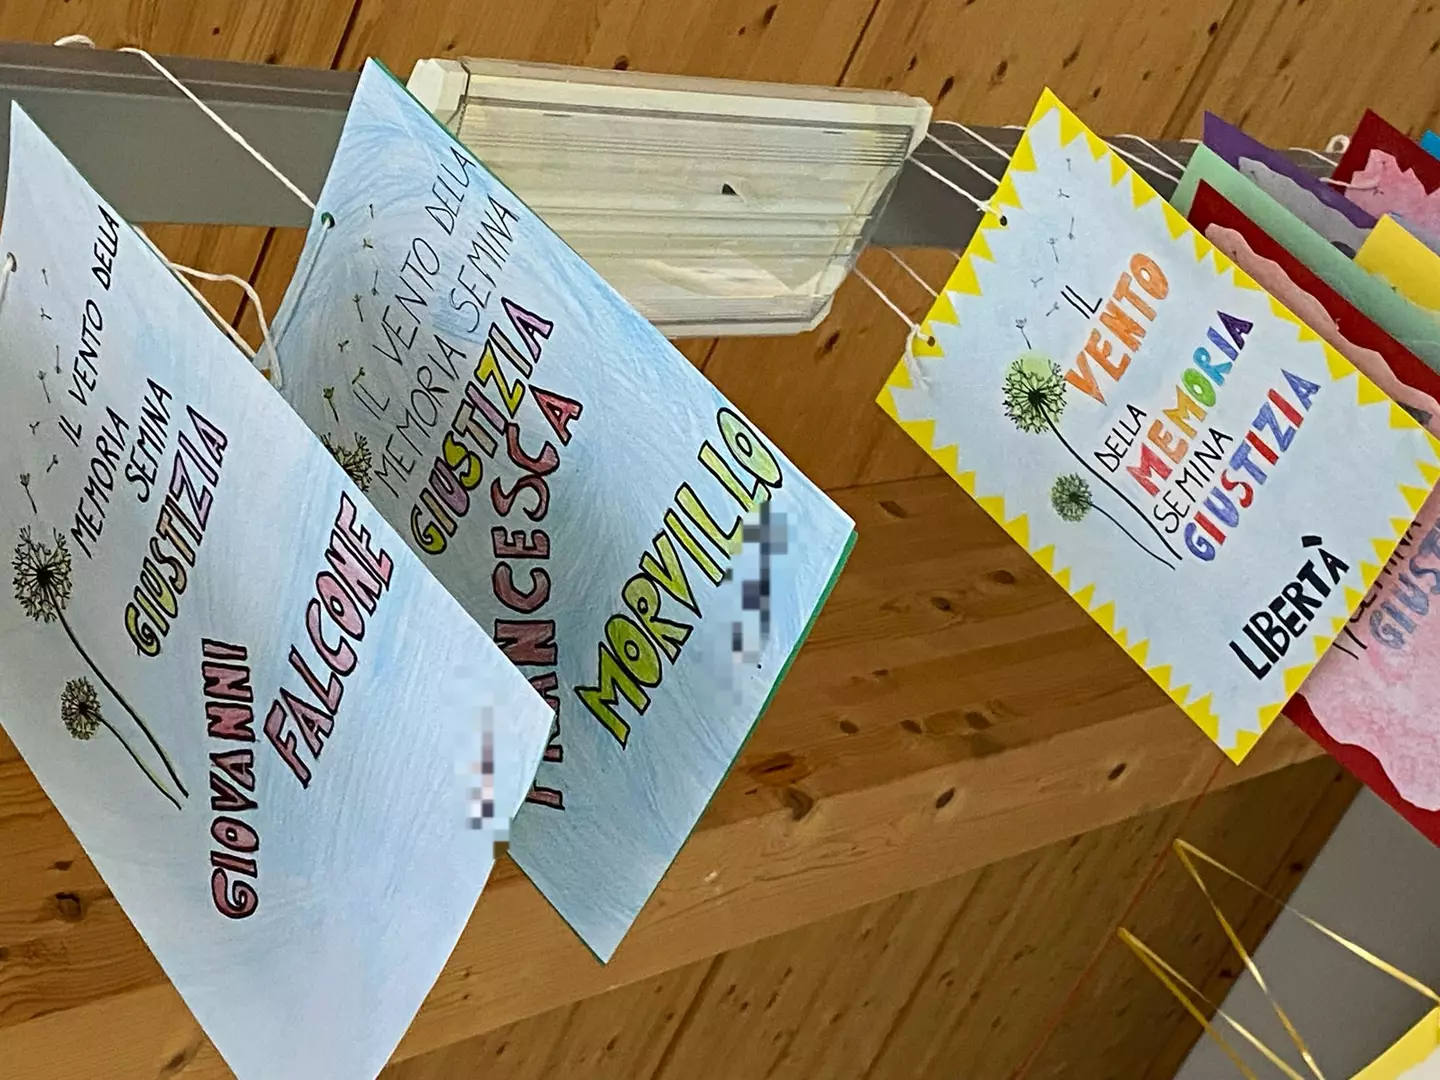 IL VENTO DELLA
MEMORIA
SEMINA
GIUSTIZIA
GIOVANNI
FALCONE
IL VENTO DELLA
MEMORIA SEMINA
GIUSTIZIA
FRANCESCA
MORVILLO
IL
VENTO
DELLA
MEMORIA
SEMINA
GIUSTIZIA
LIBERTÀ